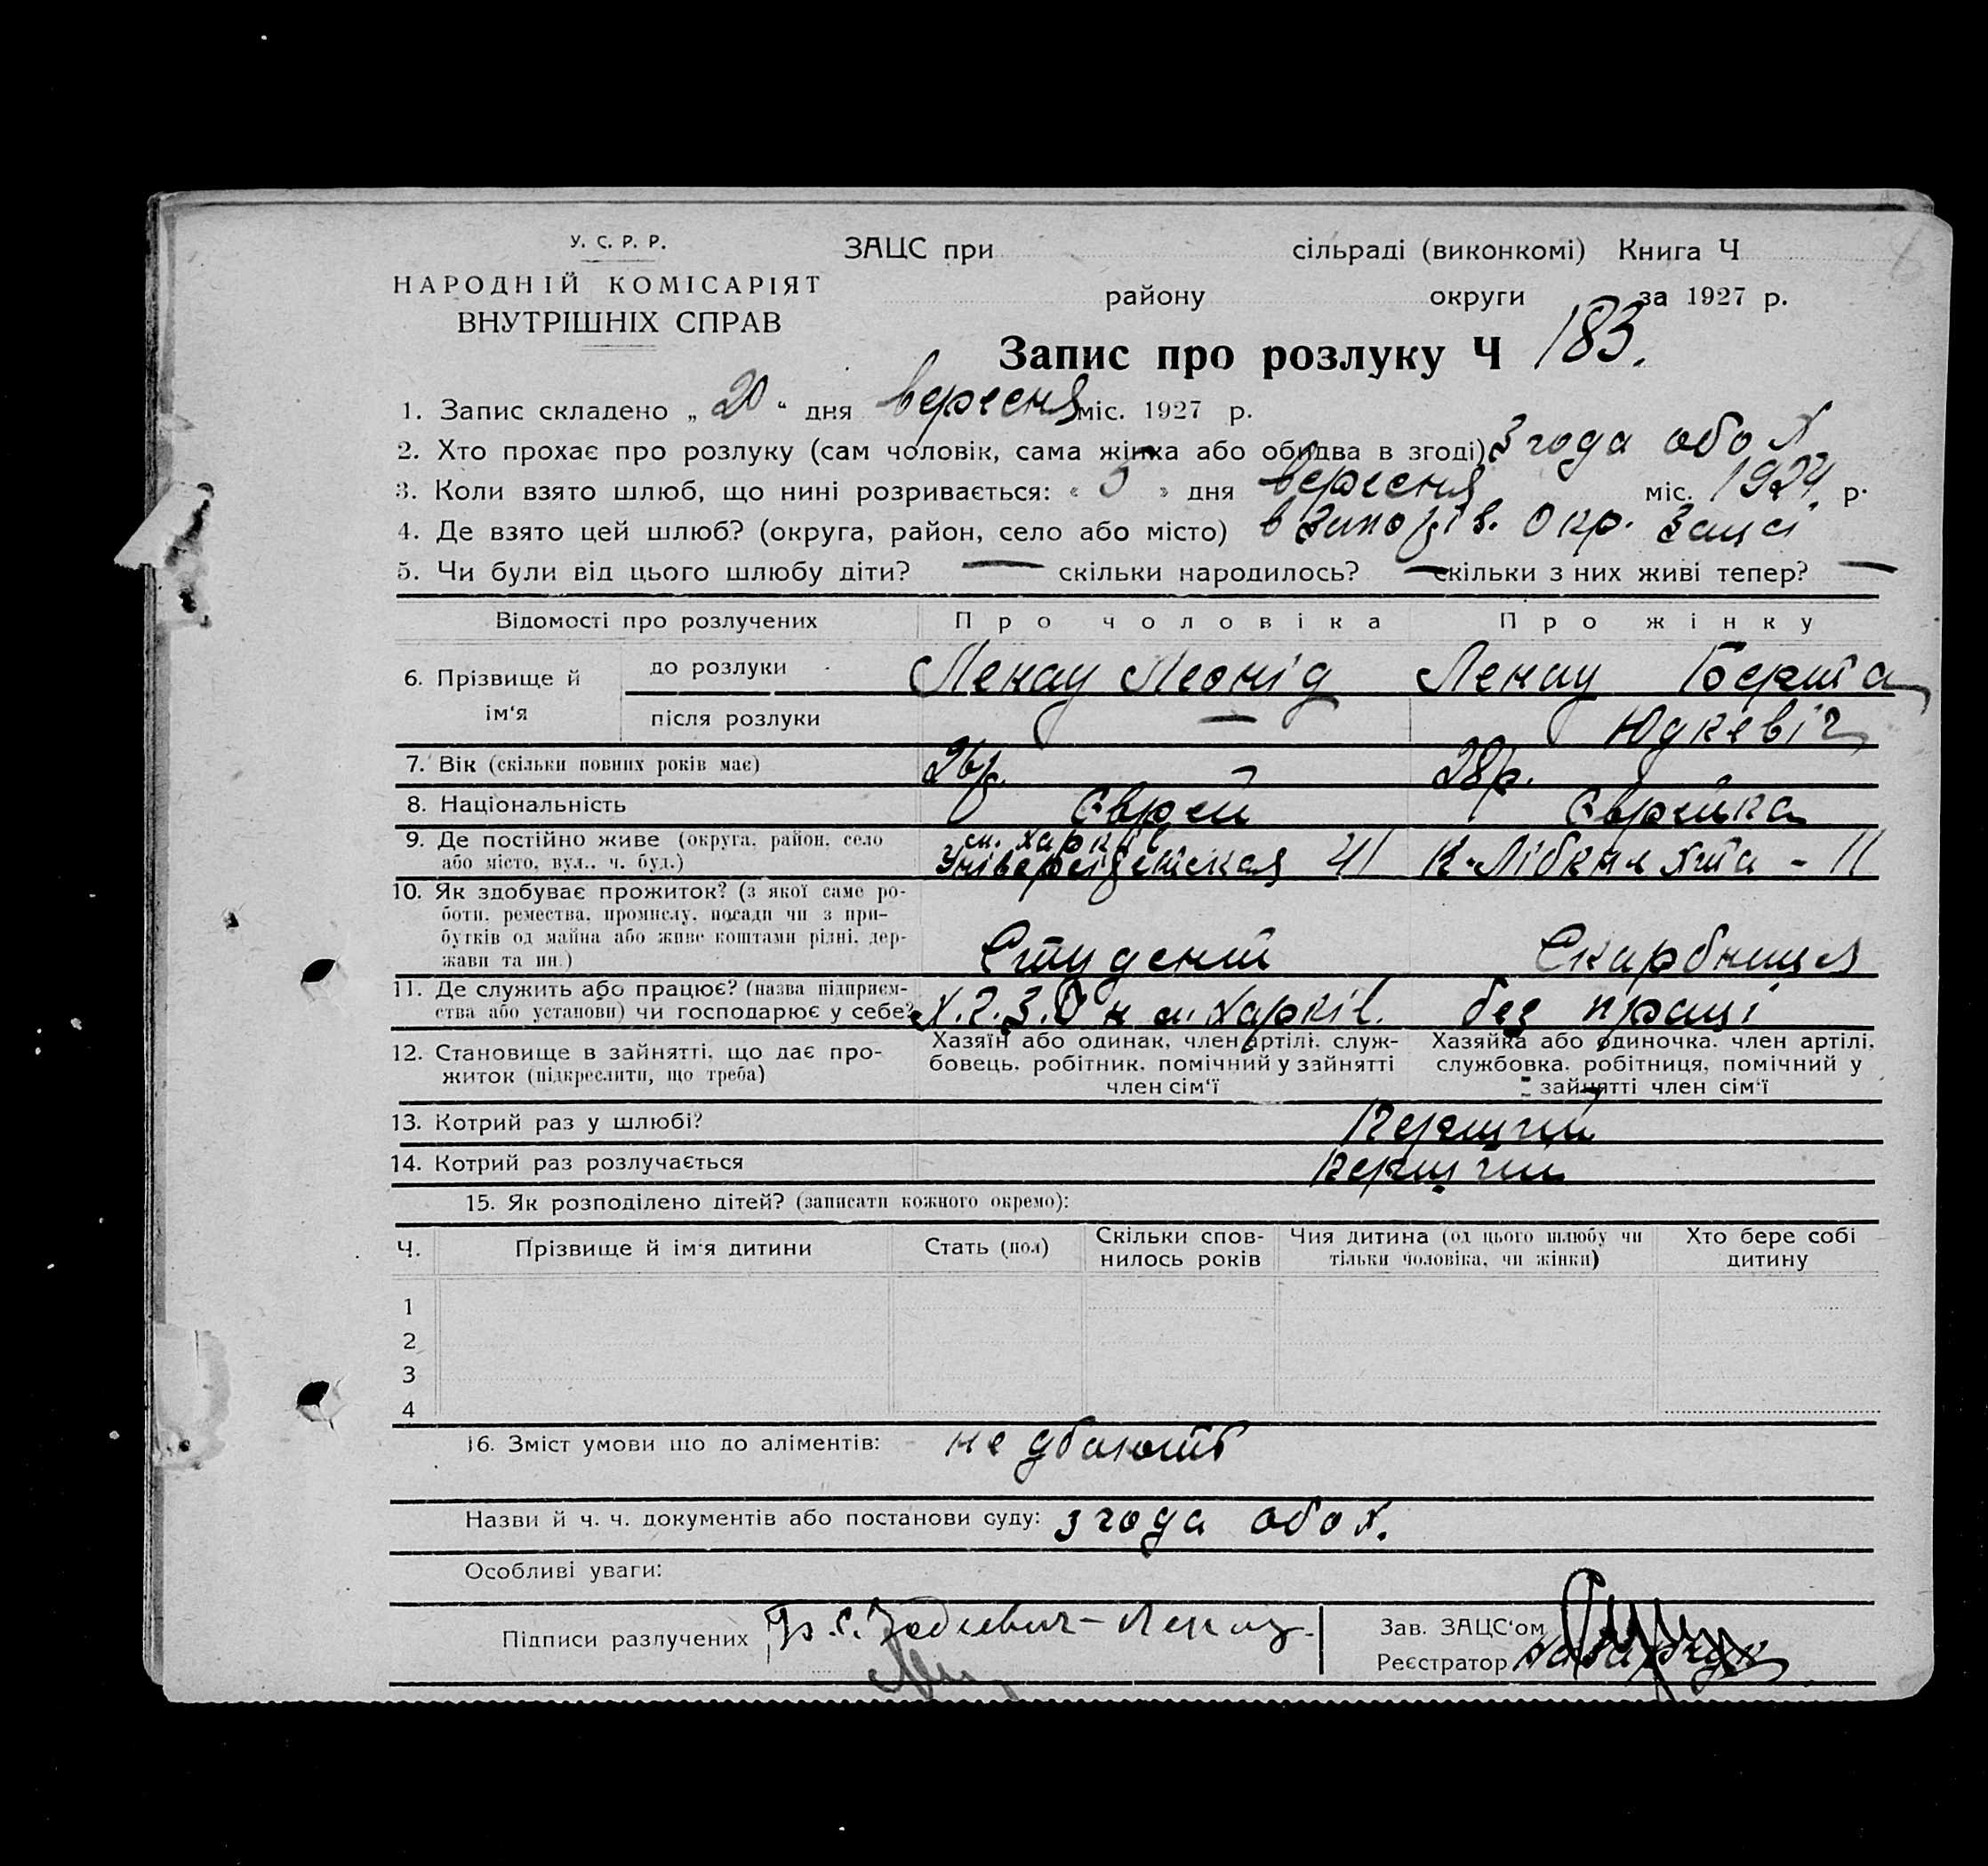 У. С. Р. Р.
НАРОДНІЙ КОМІСАРІЯТ
ВНУТРІШНІХ СПРАВ
ЗАЦС при сільраді (виконкомі) Книга Ч
району округи за 1927 р.
Запис про розлуку Ч 183.
1. Запис складено „ 20 “ дня вересня міс. 1927 р.
2. Хто прохає про розлуку (сам чоловік, сама жінка або обидва в згоді) Згода обох
3. Коли взято шлюб, що нині розривається: « 5 » дня вересня міс. 1924 р.
4. Де взято цей шлюб? (округа, район, село або місто) в Запоріз. Окр. Зацсі
5. Чи були від цього шлюбу діти? — скільки народилось? — скільки з них живі тепер? —
Відомості про розлучених Про чоловіка Про жінку
6. Прізвище й ім'я
до розлуки Ленау Леонід Ленау Берта
після розлуки — Юдкевіч
7. Вік (скільки повних років має) 26 р. 28 р.
8. Національність Єврей Єврейка
9. Де постійно живе (округа, район, село або місто, вул., ч. буд.) м. Харків Універсітетская 41 К-Лібкнехта - 11
10. Як здобуває прожиток? (з якої саме ро-
боти, ремества, промислу, посади чи з при-
бутків од майна або живе коштами рідні, дер-
жави та ин.) Студент Скарбниця
11. Де служить або працює? (назва підприєм-
ства або установи) чи господарює у себе? м. Харків. без праці
12. Становище в зайнятті, що дає про-
житок (підкреслити, що треба)
Хазяїн або одинак, член артілі, служ-
бовець, робітник, помічний у зайнятті
член сім'ї
Хазяйка або одиночка, член артілі,
службовка, робітниця, помічний у
зайнятті член сім'ї
13. Котрий раз у шлюбі? Перший
14. Котрий раз розлучається Перший
15. Як розподілено дітей? (записати кожного окремо):
Ч. Прізвище й ім'я дитини Стать (пол) Скільки спов-
нилось років Чия дитина (од цього шлюбу чи
тільки чоловіка, чи жінки) Хто бере собі
дитину
1
2
3
4
16. Зміст умови що до аліментів: не дбають
Назви й ч. ч. документів або постанови суду: згода обох.
Особливі уваги:
Підписи разлучених
Зав. ЗАЦС'ом
Реєстратор